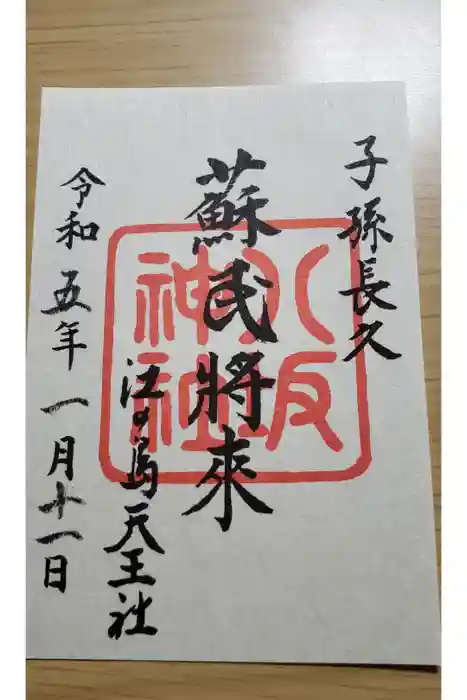 子孫長久
蘇民将來
八坂
神社
江の島天王社
令和五年一月十一日